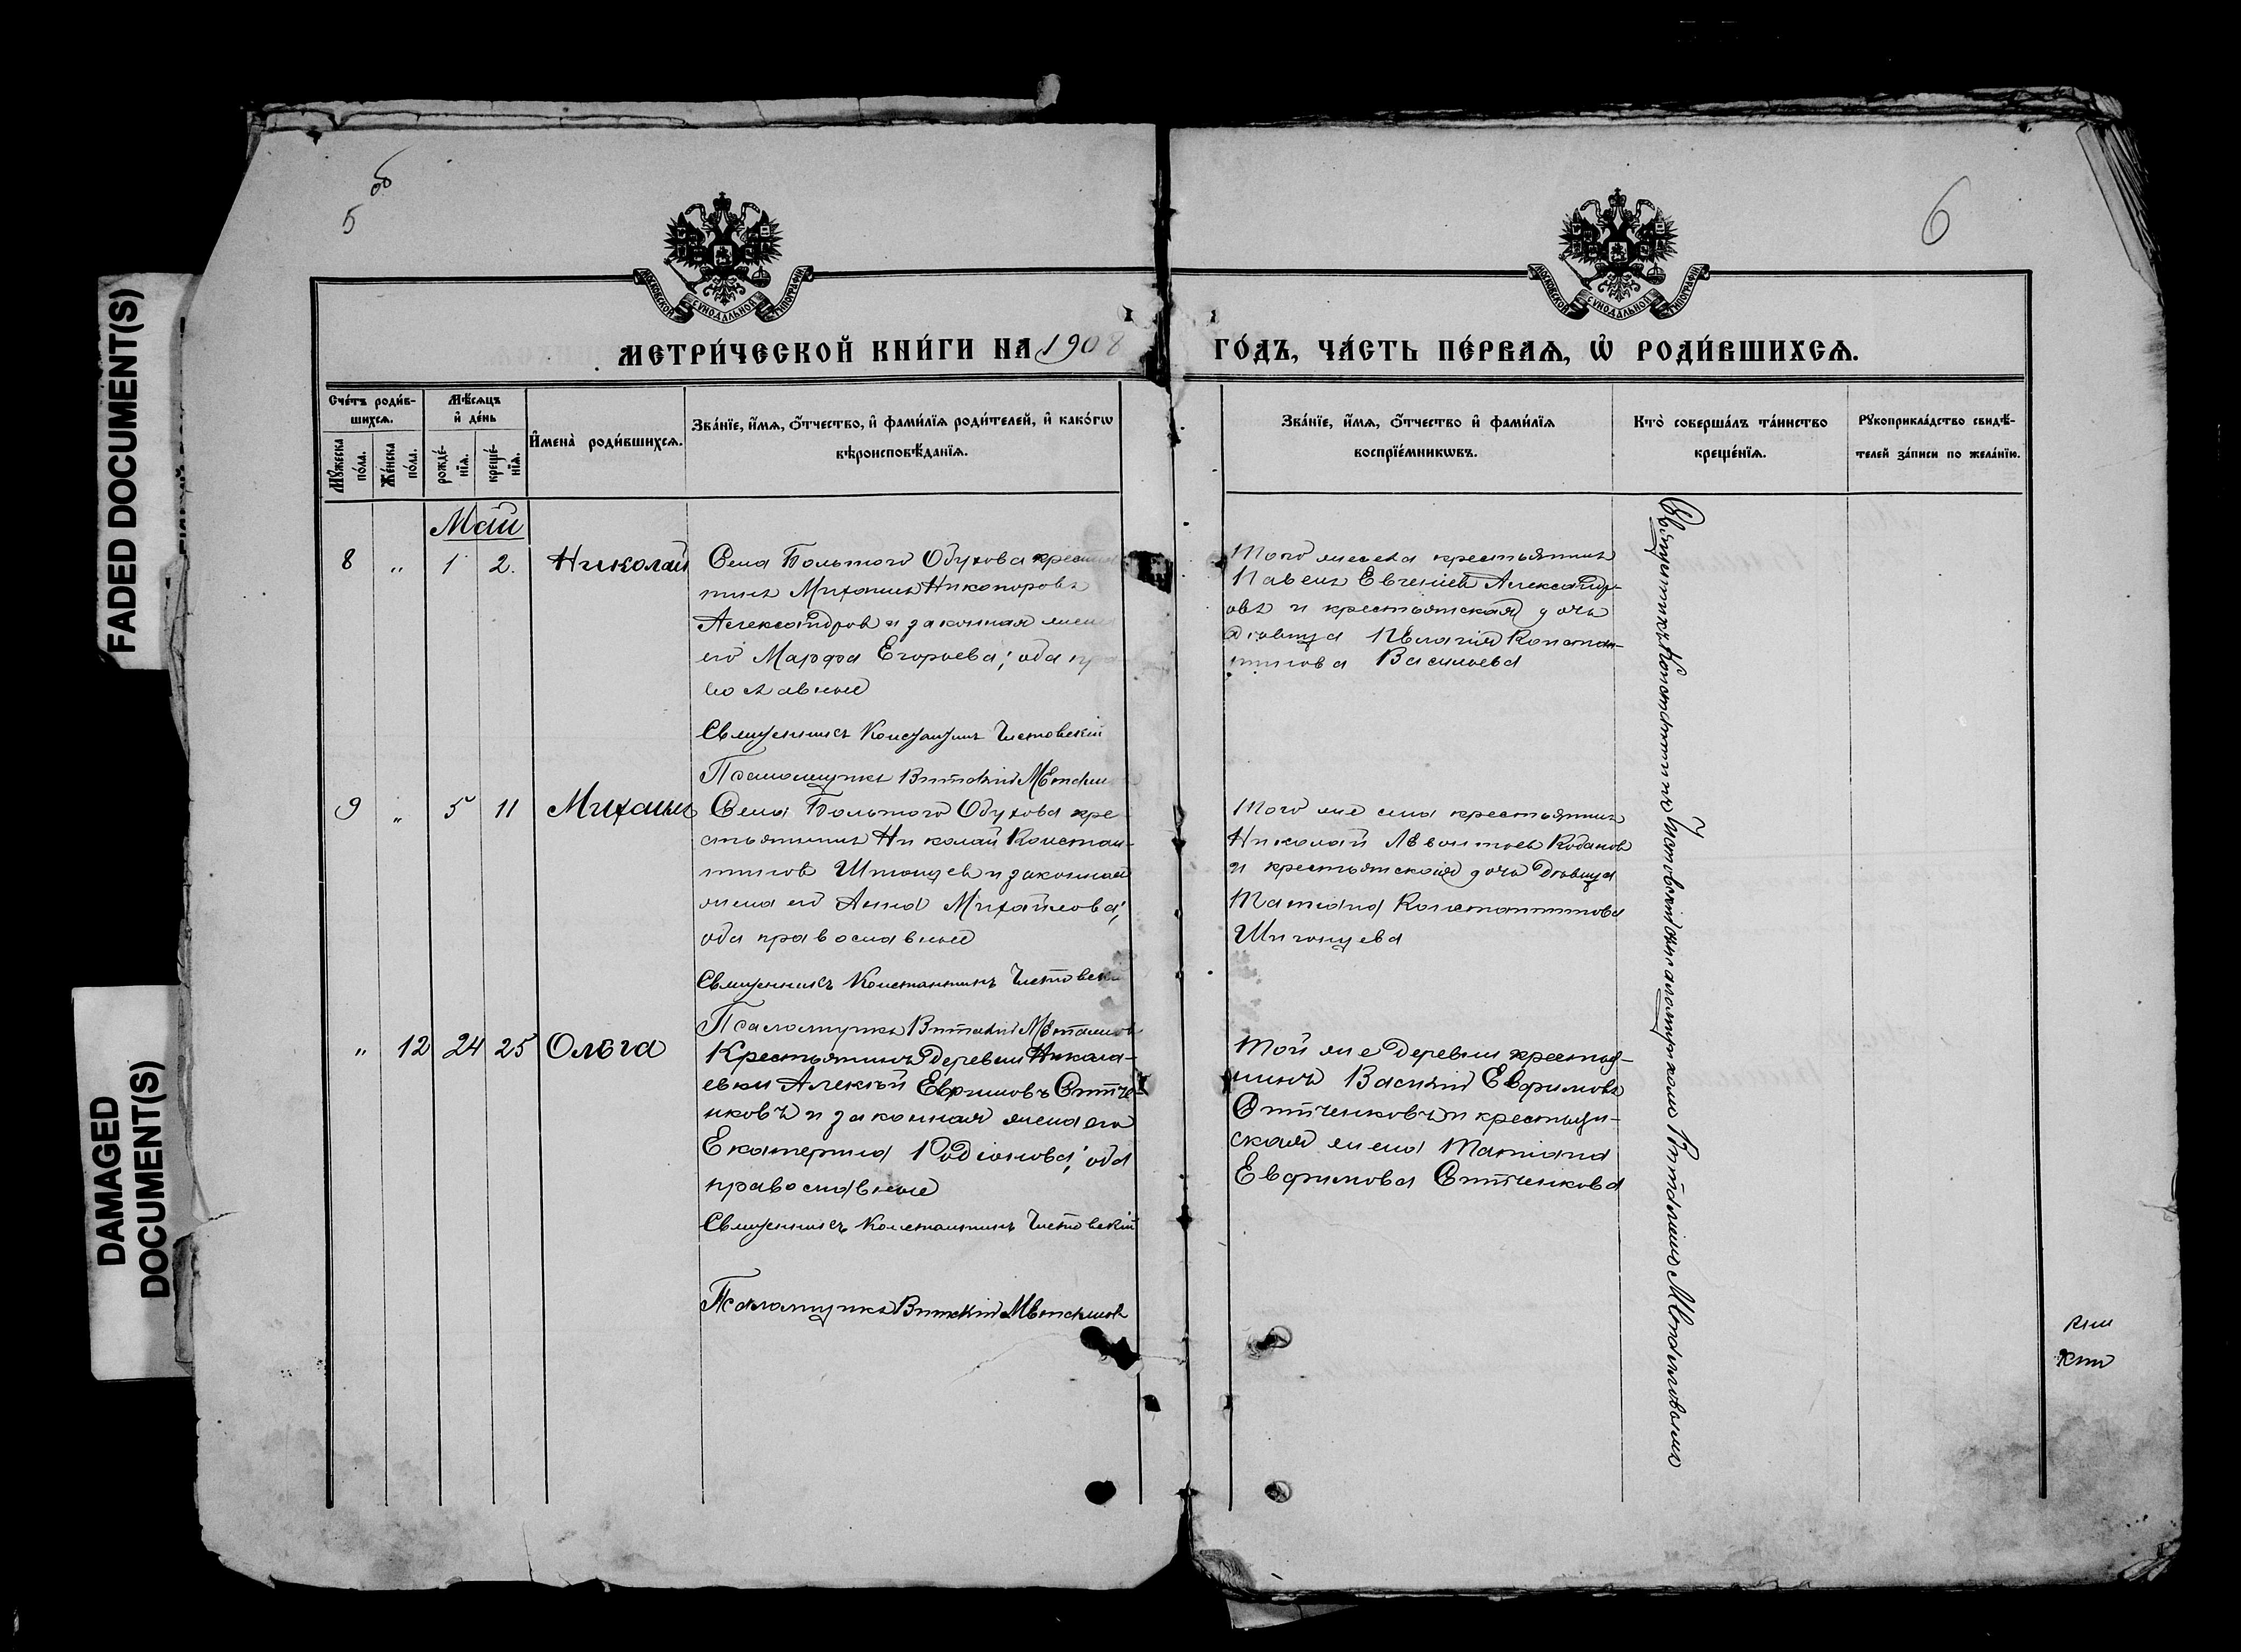 FADED DOCUMENT(S)
DAMAGED
DOCUMENT(S)
5 об
6
МОСКОВСКОЙ СѴНОДАЛЬНОЙ ТИПОГРАФІИ
МОСКОВСКОЙ СѴНОДАЛЬНОЙ ТИПОГРАФІИ
МЕТРИ́ЧЕСКОЙ КНИ́ГИ НА 1908 ГО́ДЪ, ЧА́СТЬ ПЕ́РВАѦ, Ѡ҆ РОДИ́ВШИХСѦ.
Сче́тъ роди́в-
шихсѧ.
Мꙋ́жеска
по́ла.
Же́нска
по́ла.
Мѣ́сѧцъ
и҆ де́нь
рожде́-
нїѧ.
креще́-
нїѧ.
И҆мена̀ роди́вшихсѧ.
Зва́нїе, и҆́мѧ, ѻ҆́тчество, и҆ фами́лїѧ роди́телей, и҆ како́гѡ
вѣроисповѣ́данїѧ.
Зва́нїе, и҆́мѧ, ѻ҆́тчество и҆ фами́лїѧ
воспрїе́мникѡвъ.
Кто̀ соверша́лъ та́инство
креще́нїѧ.
Рꙋкоприкла́дство свидѣ́-
телей за́писи по жела́нїю.
Май
8 „ 1 2. Николай
Села Большого Одухова крестья
нинъ Михаилъ Никаноровъ
Александров и законная жена
его Марфа Егорьева; оба пра
вославные
Священникъ Константинъ Чистовскій
Псаломщикъ Виталій Мѣталли
Того же села крестьянинъ
Павелъ Евгеніев Александр-
овъ и крестьянская дочь
дѣвица Пелагія Констан-
тинова Васильева
9 „ 5 11 Михаилъ
Села Большого Одухова кре
стьянинъ Николай Констан-
тинов Шпонцев и законная
жена его Анна Михайлова;
оба православные
Священникъ Константинъ Чистовскій
Псаломщикъ Виталій Мѣталлов
Того же села крестьянинъ
Николай Лѣвонтьев
и крестьянская дочь дѣвица
Татіана Константинова
„ 12 24 25 Ольга
Крестьянинъ деревни Никола-
евки Алексѣй Евфимовъ
и законная жена его
Екатерина Родіонова; оба
православные
Священникъ Константинъ Чистовскій
Псаломщикъ Виталій Мѣталлов
Той же деревни крестья-
нинъ Василій Евфимовъ
и крестьян-
ская жена Татіана
Евфимова
Священникъ Константинъ Чистовскій съ псаломщикомъ Виталіемъ Мѣталловымъ